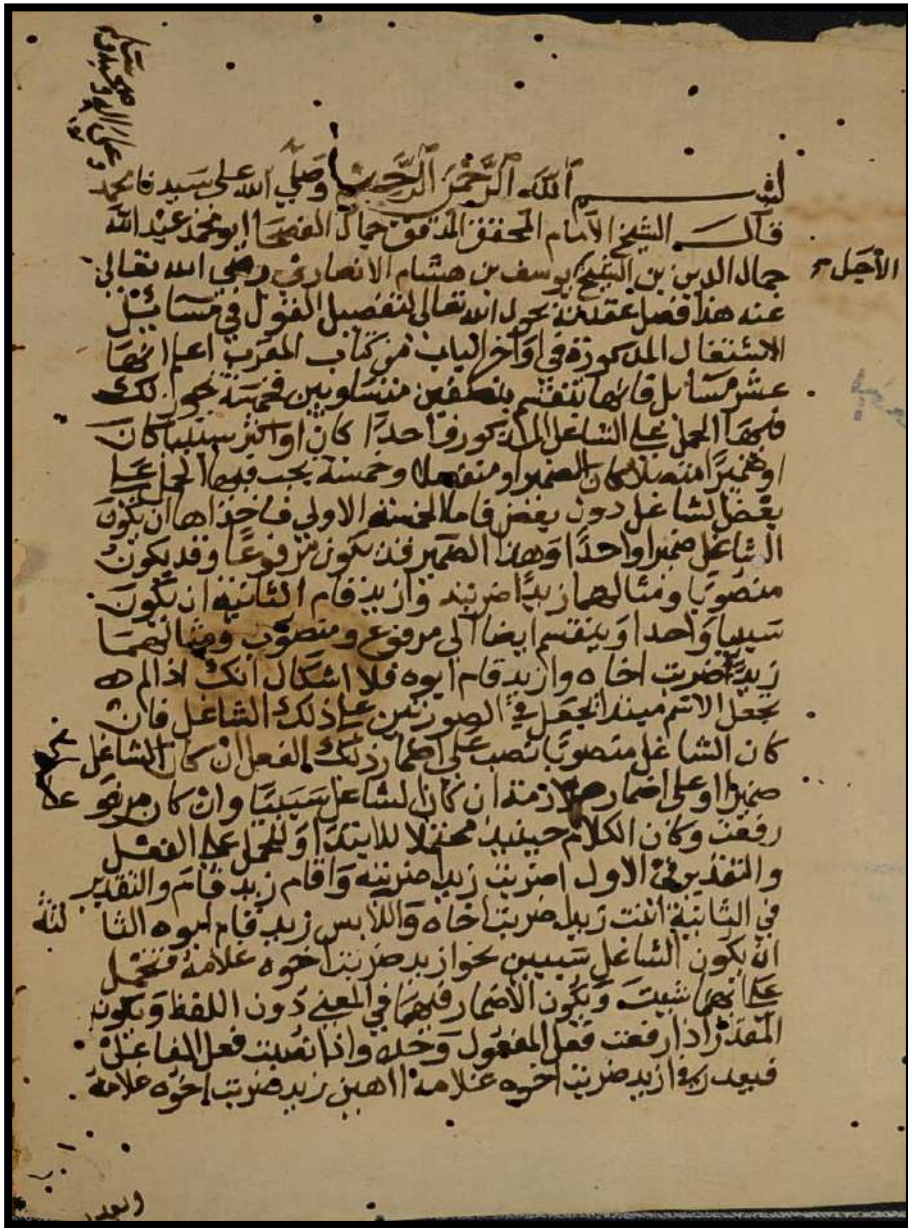 بسم الله الرحمن الرحيم وصلي الله علي سيدنا محمد
قال الشيخ الامام المحقق المدقق جمال الفصحا ابو محمد عبد الله
الأجل
جمال الدين بن الشيخ يوسف بن هشام الانصاري رضي الله تعالي
عنه هذا فصل عقدته بحول الله تعالي لتفصيل القول في مسايل
الاشتغال المذكورة في اواخر الباب من كتاب المقرب اعلم انها
عشر مسايل فانها تنقسم بنصفين متساويين فخمسة يجوز لك
فيها الحمل علي الشاغل المذكور واحدا كان او اكثر سببيا كان
او ضميرا متصلا كان الضمير او منفصلا وخمسة يجب فيها الحمل علي
بعض الشاغل دون بعض فاما الخمسة الاولي فاحداها ان يكون
الشاغل ضميرا واحدا وهذا الضمير قد يكون مرفوعا وقد يكون
منصوبا ومثالهما ازيدا ضربته وازيد قام الثانية ان يكون
سببيا واحدا وينقسم ايضا الي مرفوع ومنصوب ومثالهما
ازيدا ضربت اخاه وازيد قام ابوه فلا اشكال انك اذا لم
تجعل الاسم مبتدا تجعل في الصورتين علي ذلك الشاغل فان
كان الشاغل منصوبا نصب علي اضمار ذلك الفعل ان كان الشاغل
ضميرا او علي اضمار ملازمه ان كان الشاغل سببيا وان كان مرفوعا
رفعت وكان الكلام حينيذ محتملا للابتدا وللحمل علي الفعل
والتقدير في الاول اضربت زيدا ضربته واقام زيد قام والتقدير
في الثانية اهنت زيدا ضربت اخاه والابس زيد قام ابوه الثالثة
ان يكون الشاغل سببيين نحو ازيد ضربت اخوه غلامه فتحمل
علي ايهما شيت ويكون الاضمار فيهما في المعني دون اللفظ ويكون
المقدر اذا رفعت فعل المفعول وحده واذا نصبت فعل الفاعل
ازيد ضربت اخوه غلامه ااهين زيد ضربت اخوه غلامه